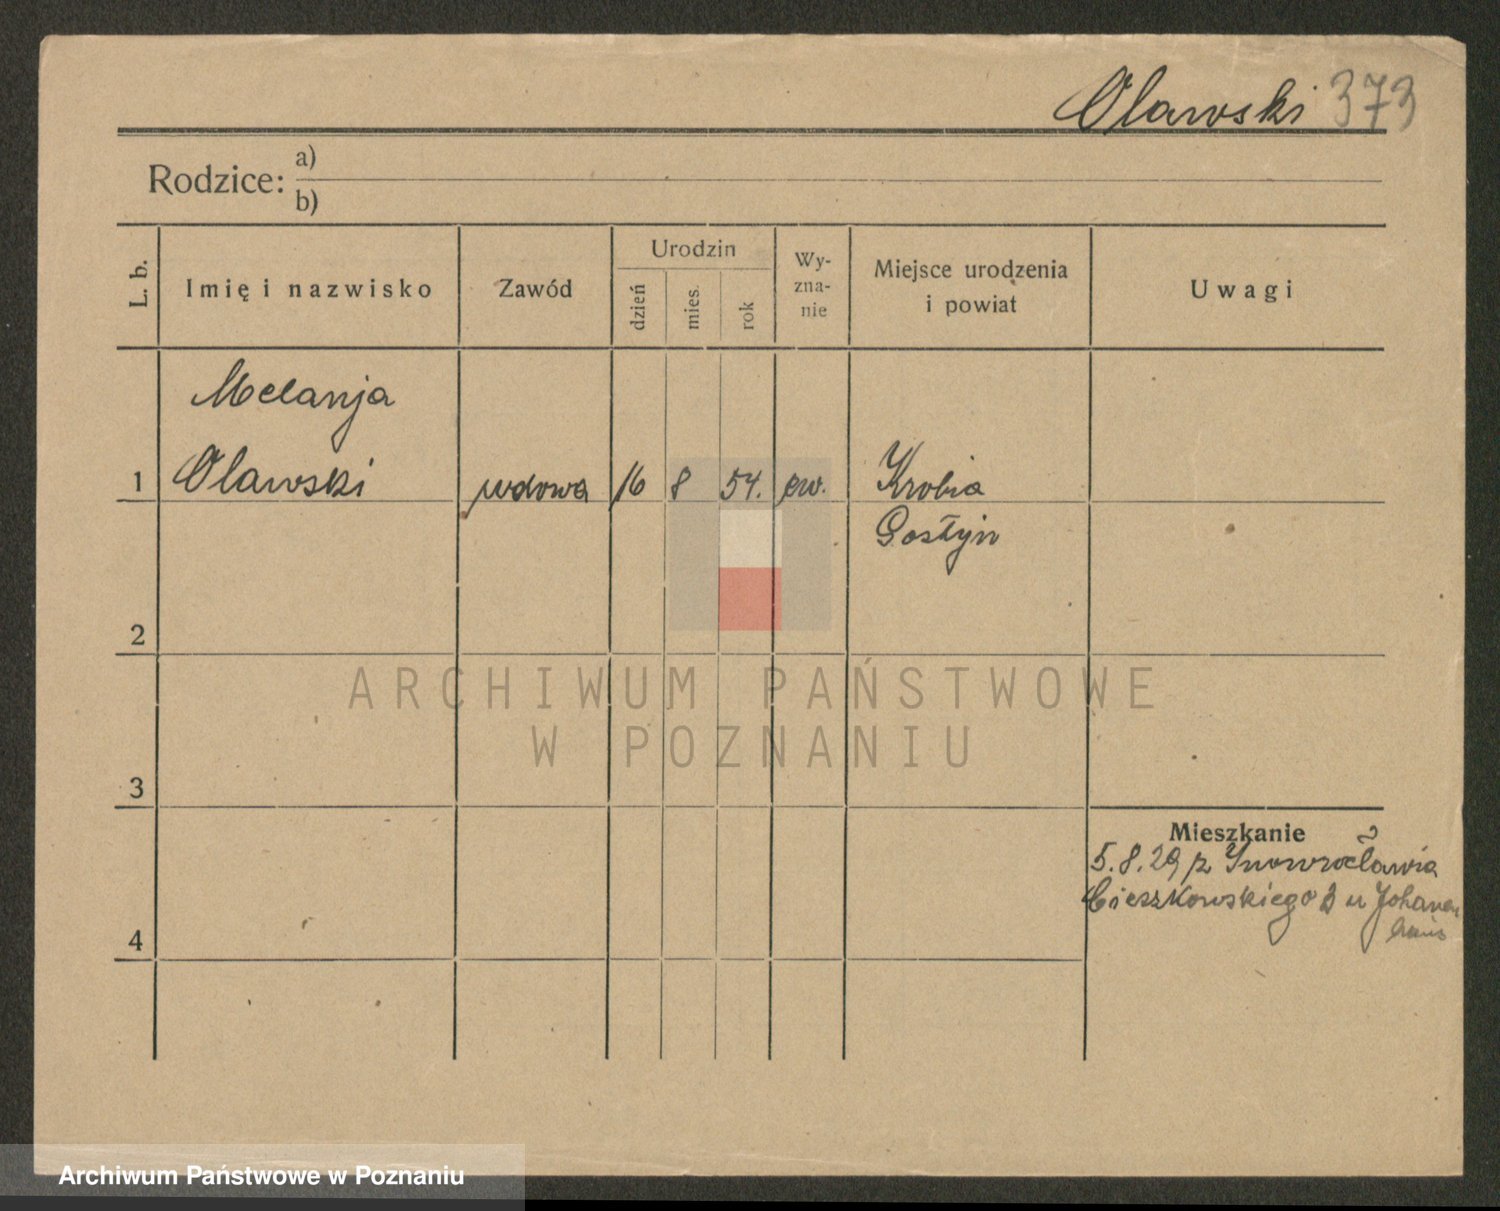 Olawski 373
Rodzice: a)
b)
L. b.
Imię i nazwisko
Zawód
Urodzin
dzień
mies.
rok
Wy-
zna-
nie
Miejsce urodzenia
i powiat
Uwagi
Melanja
1 Olawski wdowa 16 8 54. ew. Krobia
Gostyń
2
ARCHIWUM PAŃSTWOWE
W POZNANIU
3
Mieszkanie
5.8.29 z Inowrocławia
Cieszkowskiego 3 u Johannes
4
Archiwum Państwowe w Poznaniu